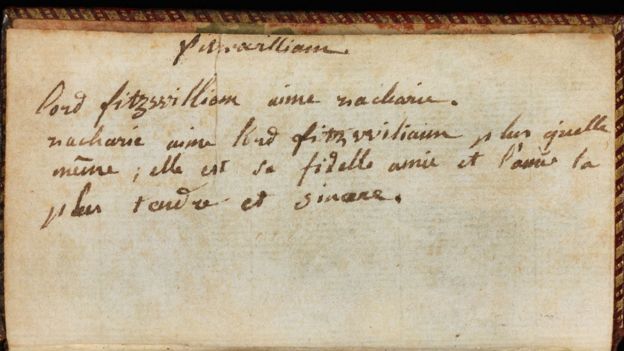 fitzwilliam.
lord fitzwilliam aime zacharie.
zacharie aime lord fitzwiliam plus quelle
même ; elle est sa fidelle amie et l'amie la
plus tendre et sincere.